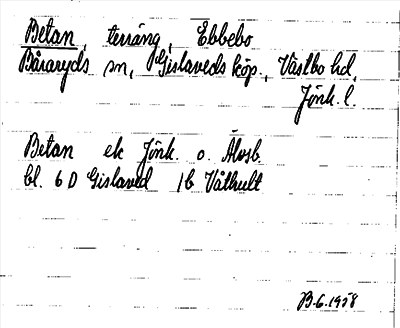 Betan, terräng, Ebbebo
Båraryds sn, Gislaveds köp., Västbo hd,
Jönk. l.
Betan ek Jönk. o. Älvsb.
bl. 6 D Gislaved 1b Våthult
B.G. 1958